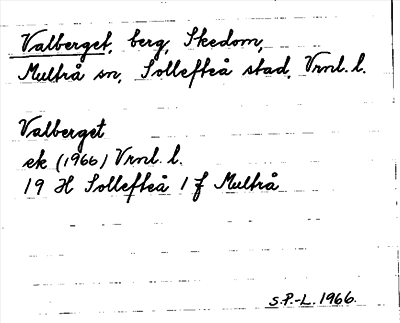 Valberget, berg, Skedom,
Multrå sn, Sollefteå stad, Vrml. l.
Valberget
ek (1966) Vrml. l.
19 H Sollefteå 1 f Multrå
S.P.-L. 1966.